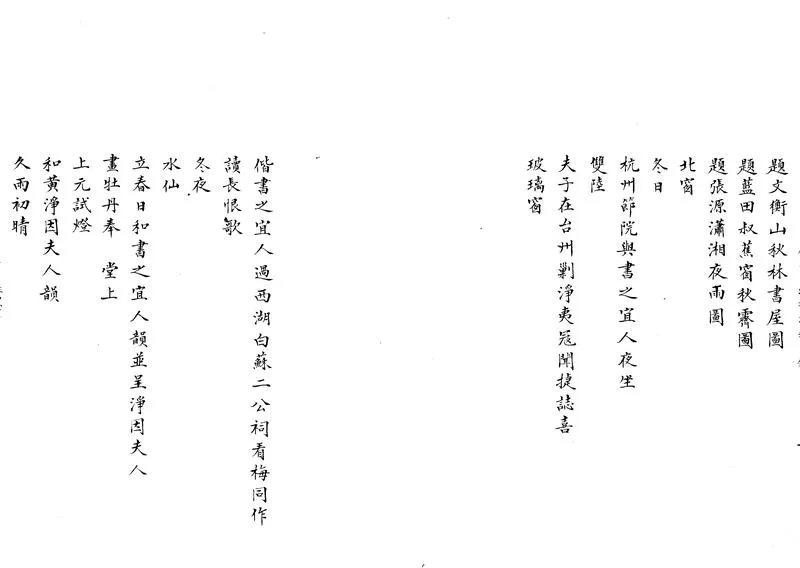 題文衡山秋林書屋圖
題藍田叔蕉窗秋霽圖
題張源瀟湘夜雨圖
北窗
冬日
杭州節院與書之宜人夜坐
雙陸
夫子在台州剿淨夷冦聞捷誌喜
玻璃窗
偕書之宜人過西湖白蘇二公祠看梅同作
讀長恨歌
冬夜
水仙
立春日和書之宜人韻並呈淨因夫人
畫牡丹奉　堂上
上元試燈
和黃淨因夫人韻
久雨初晴